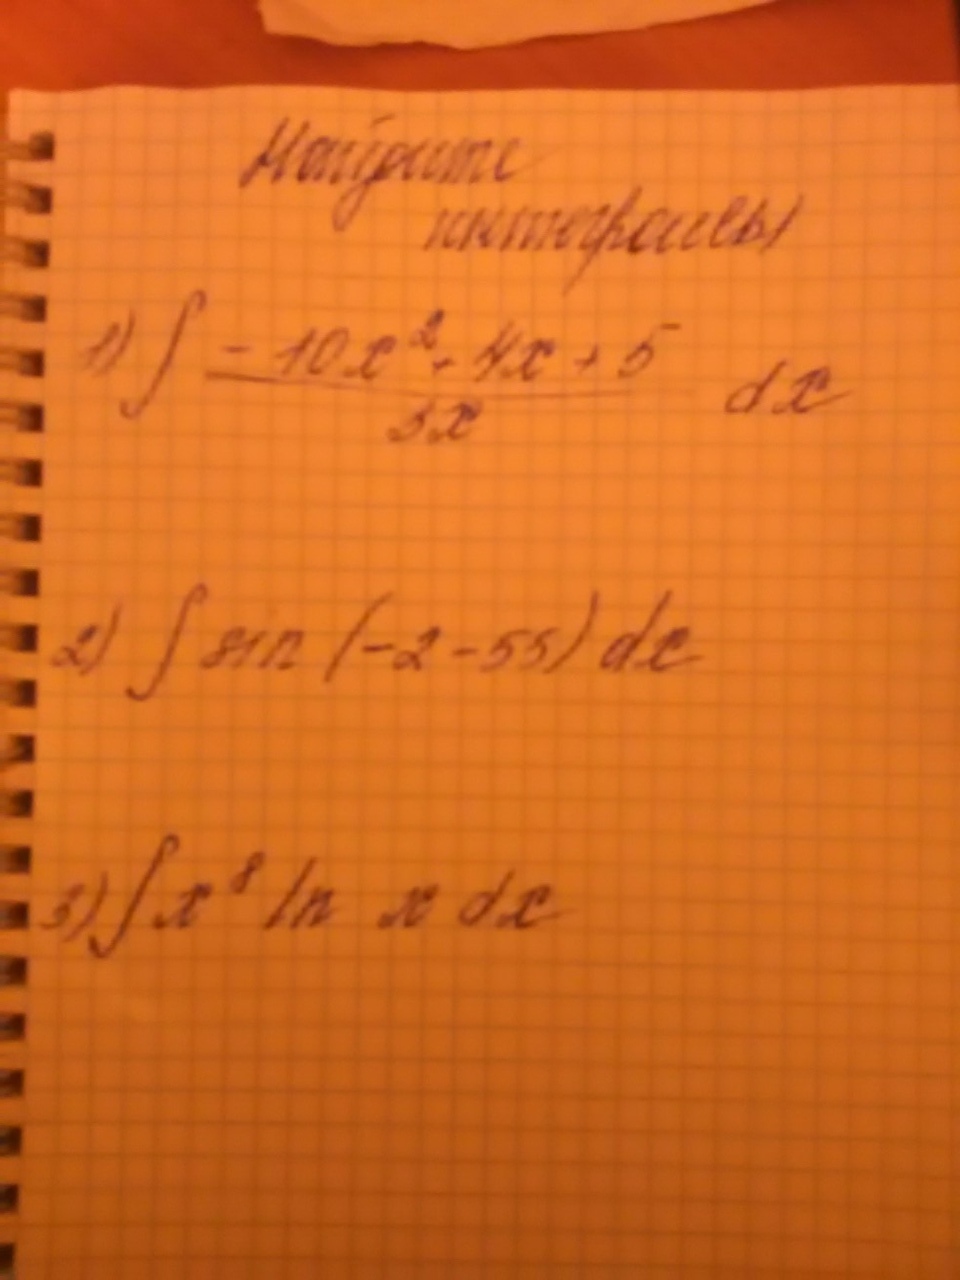 Найдите
интегралы
1) ∫ (-10x² + 4x + 5)/(3x) dx
2) ∫ sin (-2-55) dx
3) ∫ x⁸ ln x dx